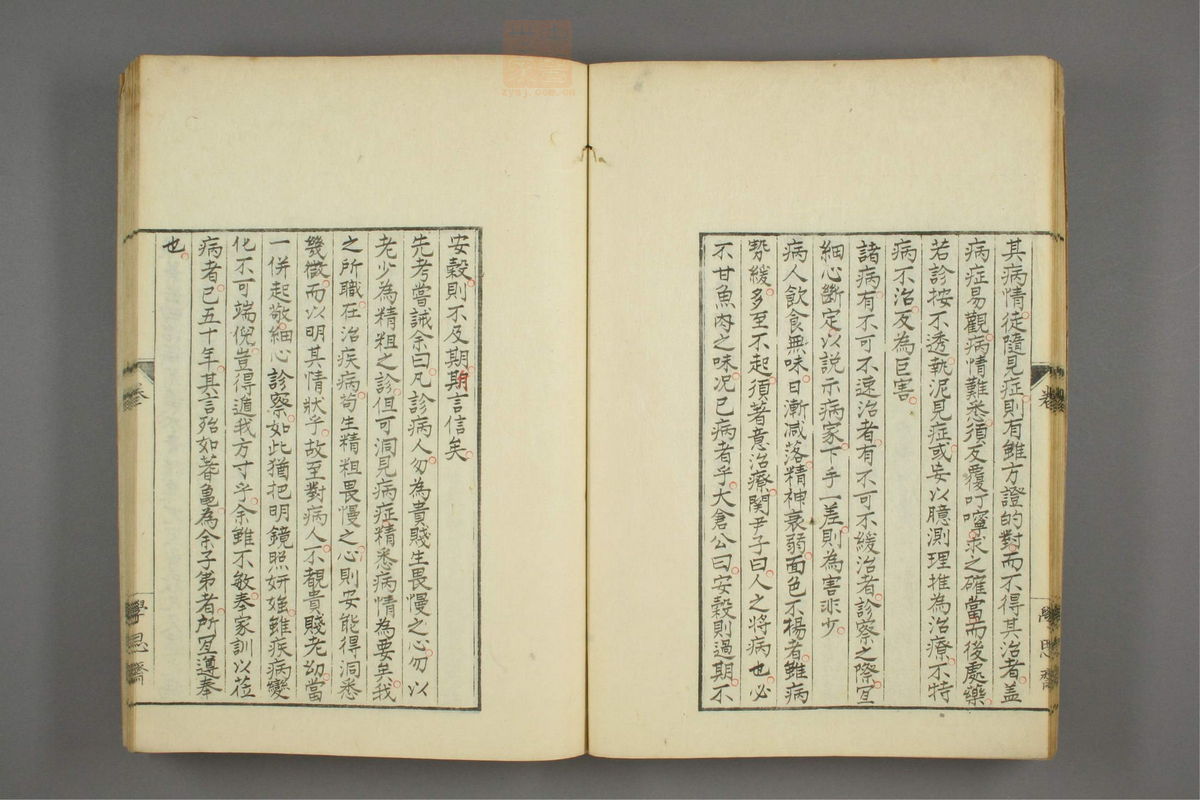 其病情。徒隨見症。則有雖方證的對。而不得其治者。蓋
病症易觀。病情難悉。須反覆叮嚀。求之確當。而後處藥。
若診按不透。執泥見症。或妄以臆測理推為治療。不特
病不治。反為巨害。
諸病有不可不速治者。有不可不緩治者。診察之際。宜
細心斷定。以説示病家。下手一差。則為害非少。
病人飲食無味。日漸減落。精神衰弱。面色不揚者。雖病
勢緩。多至不起。須著意治療。関尹子曰。人之將病也。必
不甘魚肉之味。况已病者乎。大倉公曰。安穀則過期。不
安穀。則不及期。期言信矣。
先考嘗誡余曰。凡診病人。勿為貴賤生畏慢之心。勿以
老少為精粗之診。但可洞見病症。精悉病情為要矣。我
之所職。在治疾病。苟生精粗畏慢之心。則安能得洞悉
幾微。而以明其情狀乎。故至對病人。不覩貴賤老幼。當
一併起敬。細心診察。如此猶把明鏡照妍媸。雖疾病變
化不可端倪。豈得遁我方寸乎。余雖不敏。奉家訓以莅
病者。已五十年。其言殆如蓍龜。為余子弟者。所宜遵奉
也。
卷
學思齋
卷
學思齋
zysj.com.cn